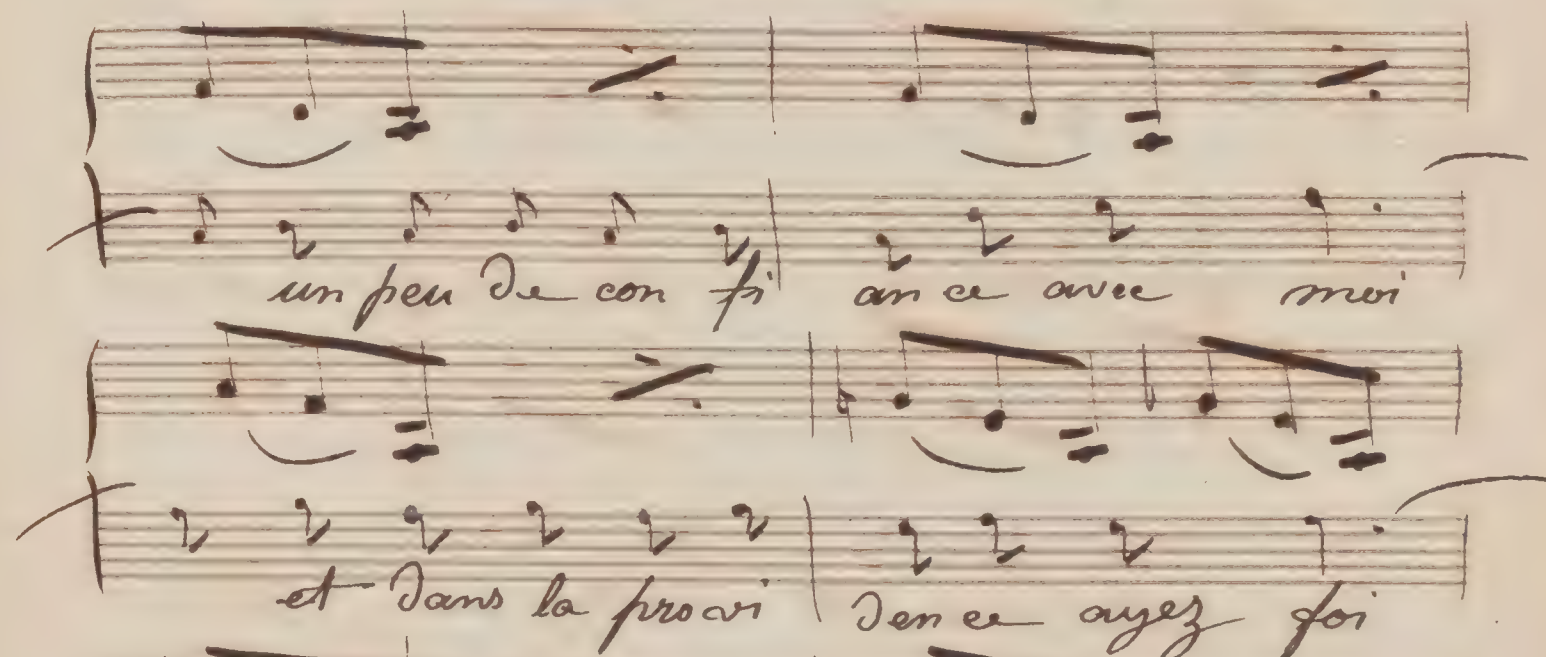 un peu de con fi an ce avec moi
et dans la provi den ce ayez foi